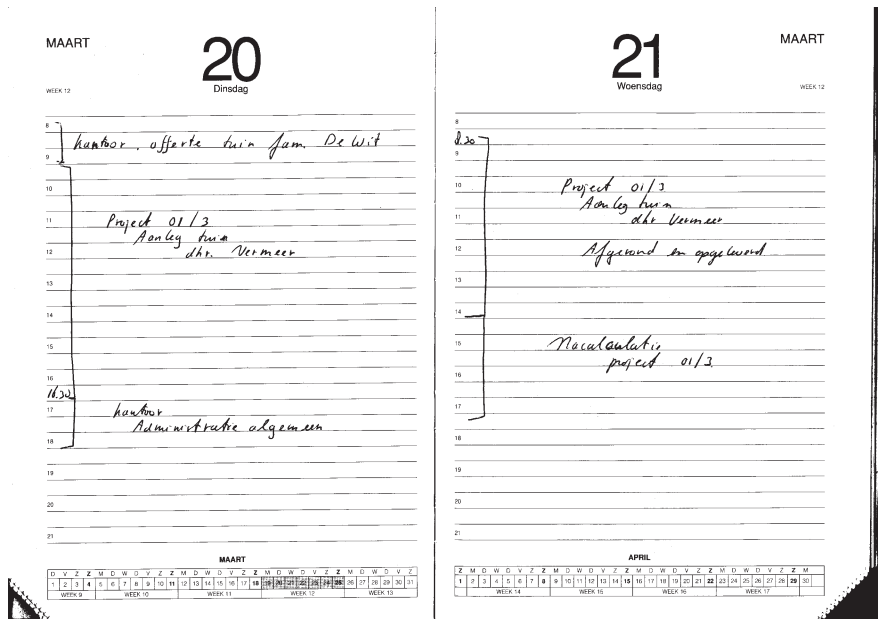 MAART
20
Dinsdag
WEEK 12
8
kantoor, offerte tuin fam. De Wit
9
10
11
Project 01/3
Aanleg tuin
12
dhr. Vermeer
13
14
15
16
16.30
17
kantoor
Administratie algemeen
18
19
20
21
MAART
D V Z Z M D W D V Z Z M D W D V Z Z M D W D V Z Z M D W D V Z
1 2 3 4 5 6 7 8 9 10 11 12 13 14 15 16 17 18 19 20 21 22 23 24 25 26 27 28 29 30 31
WEEK 9 WEEK 10 WEEK 11 WEEK 12 WEEK 13
MAART
21
Woensdag
WEEK 12
8
8.30
9
10
Project 01/3
Aanleg tuin
11
dhr Vermeer
12
Afgerond en opgeleverd
13
14
15
Nacalculatie
project 01/3.
16
17
18
19
20
21
APRIL
Z M D W D V Z Z M D W D V Z Z M D W D V Z Z M D W D V Z Z M
1 2 3 4 5 6 7 8 9 10 11 12 13 14 15 16 17 18 19 20 21 22 23 24 25 26 27 28 29 30
WEEK 14 WEEK 15 WEEK 16 WEEK 17